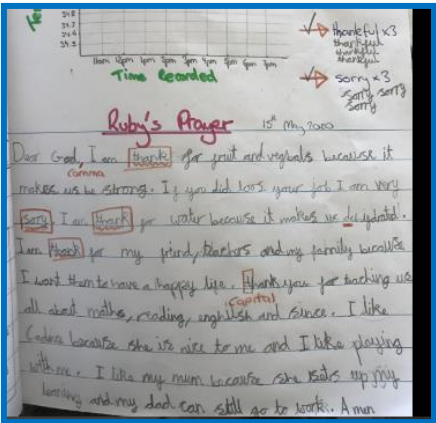 34.8
34.7
34.6
34.5
11am 12pm 1pm 2pm 3pm 4pm 5pm 6pm 7pm
Time Recorded
thankful x3
thankful
thankful
thankful
sorry x3
sorry sorry
sorry
Ruby's Prayer 15th May 2020
Dear God, I am thank for fruit and because it
comma
makes us be strong. If you did loos your job I am very
sory I am thank for water because it makes us dehydrated.
I am thank for my friend, teachers and my family because
I want them to have a happy life. thank you for teaching us
capital
all about maths, reading, and since. I like
because she is nice to me and I like playing
with me. I like my mum because she up my
learning and my dad can still go to work. Amen